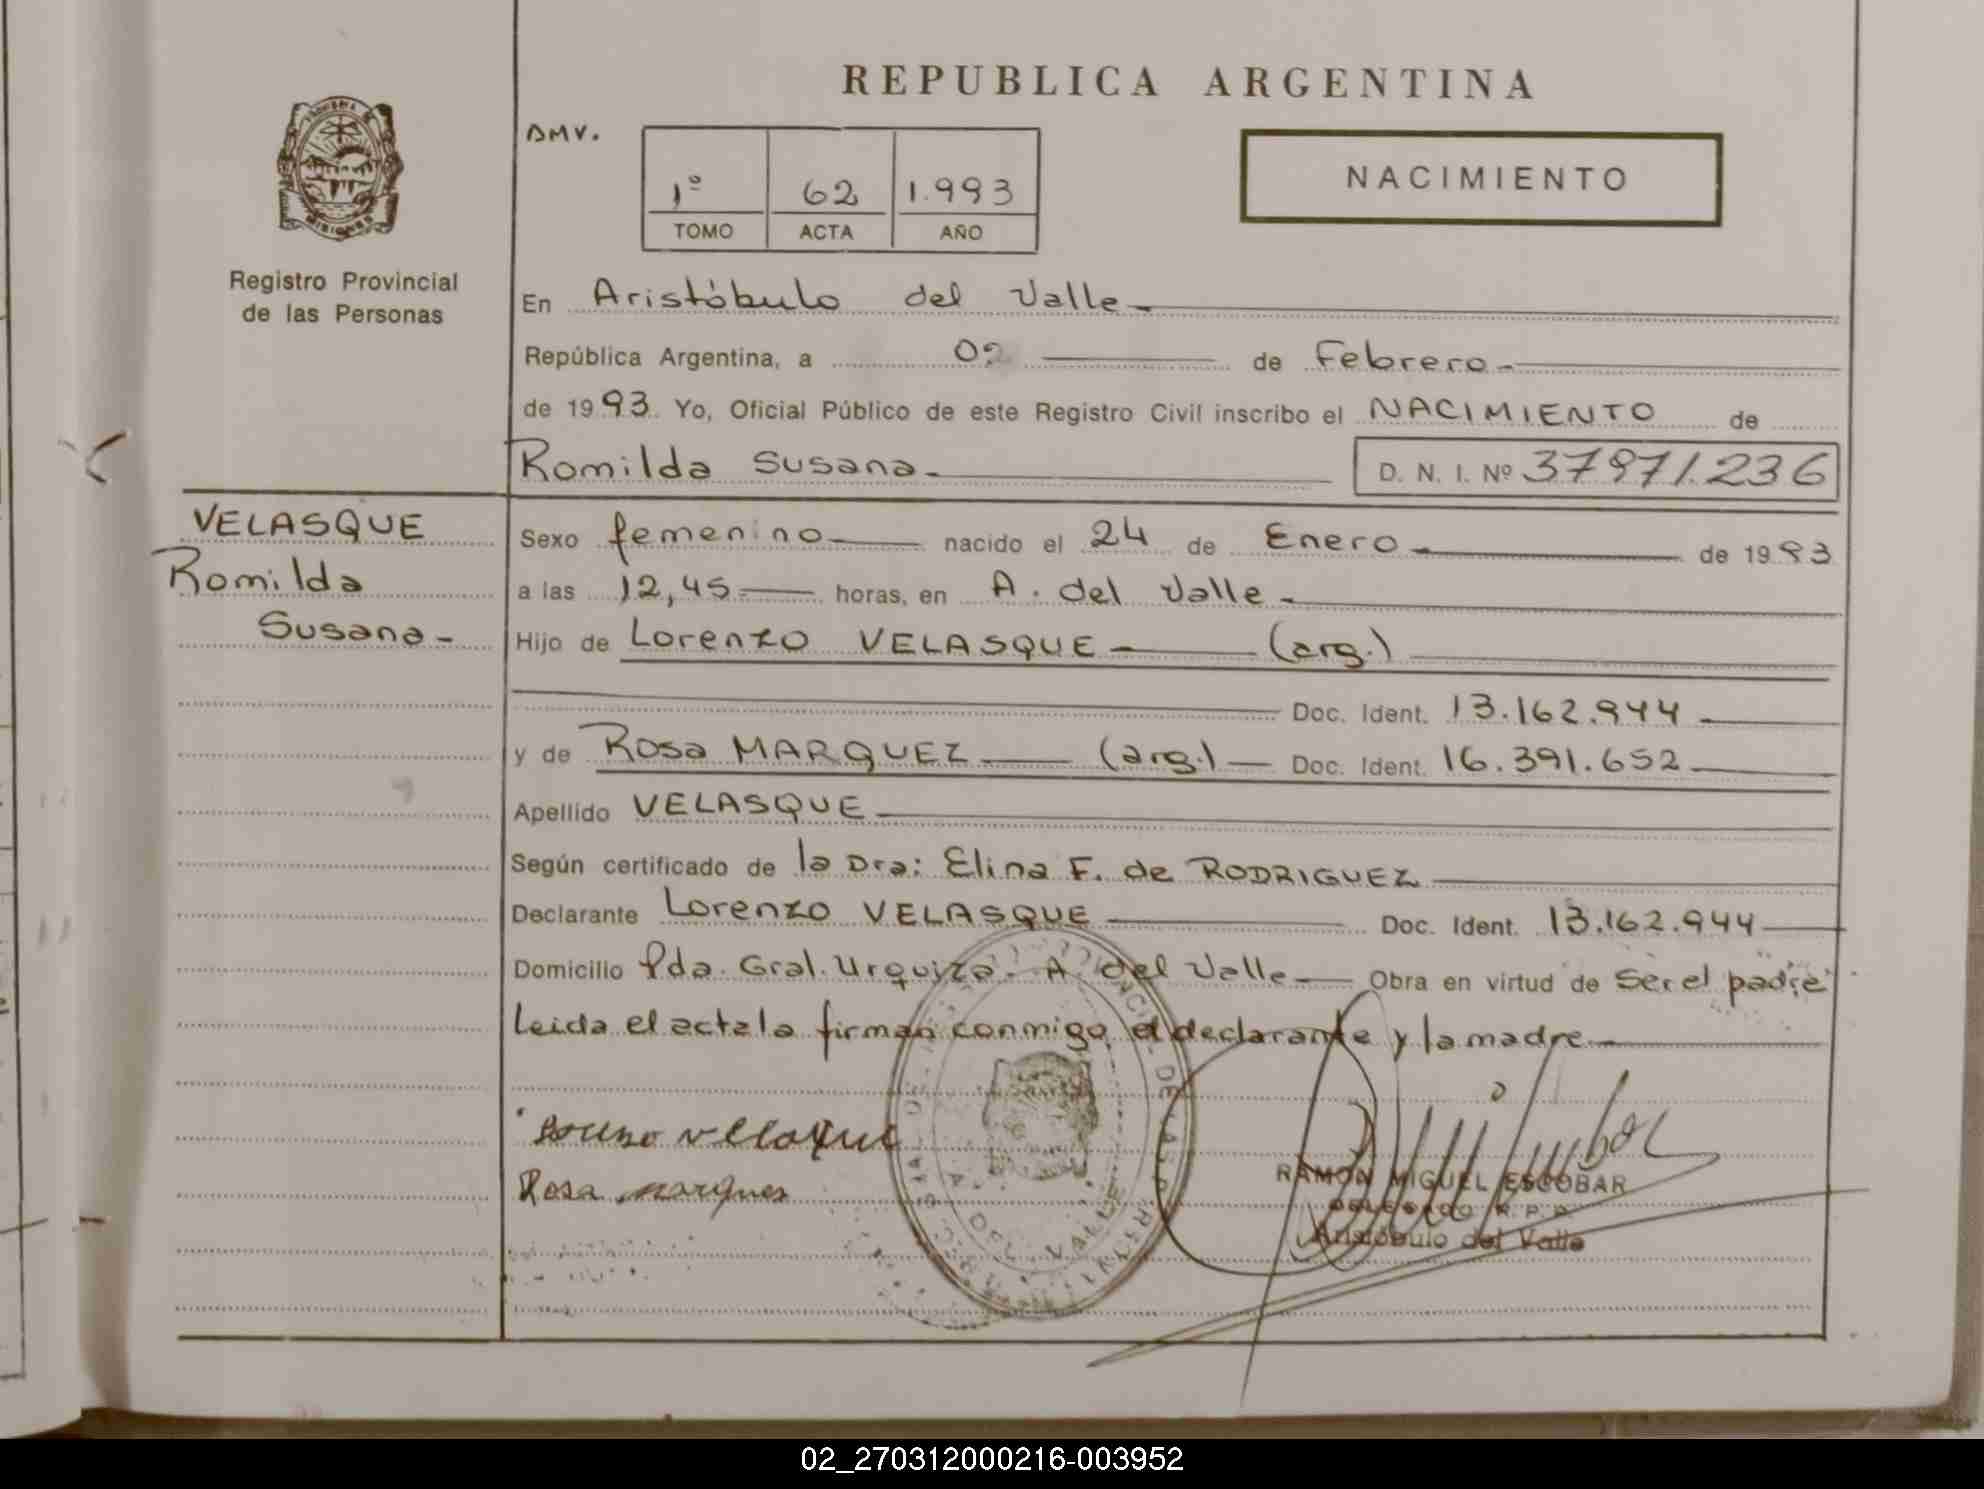 REPUBLICA ARGENTINA
DMV.
1º 62 1.993
TOMO ACTA AÑO
NACIMIENTO
MISIONES
Registro Provincial
de las Personas
En Aristóbulo del Valle
República Argentina, a 02 de Febrero
de 1993. Yo, Oficial Público de este Registro Civil inscribo el NACIMIENTO de
Romilda Susana D. N. I. Nº 37971.236
VELASQUE
Romilda
Susana
Sexo femenino nacido el 24 de Enero de 1993
a las 12,45 horas, en A. del Valle
Hijo de Lorenzo VELASQUE (arg.)
Doc. Ident. 13.162.944
y de Rosa MARQUEZ (arg.) Doc. Ident. 16.391.652
Apellido VELASQUE
Según certificado de la Dra: Elina F. de RODRIGUEZ
Declarante Lorenzo VELASQUE Doc. Ident. 13.162.944
Domicilio Pda. Gral. Urquiza. A. del Valle Obra en virtud de Ser el padre
Leida el acta la firman conmigo, el declarante y la madre
Rosa marques
A. DEL VALLE
RAMON MIGUEL ESCOBAR
DELEGADO R.P.P.
Aristóbulo del Valle
02_270312000216-003952